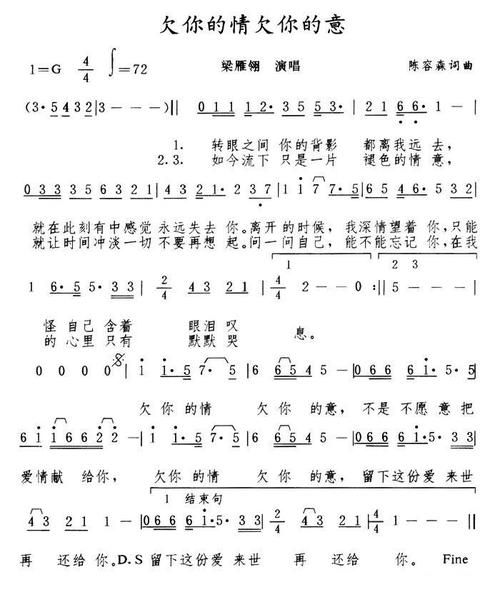 欠你的情欠你的意
1=G 4/4 ♩=72 梁雁翎 演唱 陈容森词曲
(3·5432|3---)||0111 12·3553·|2166·1·|
1. 转眼之间 你的背影 都离我远去，
2.3. 如今流下 只是一片 褪色的情意，
0333356321|4321·21·|1177·5·|6653·532|
就在此刻有中感觉 永远失去 你。离开的时候，我深情望着 你，只能
就让时间冲淡一切 不要再想 起。问一问自己，能不能忘记 你，在我
1 2 3
1 6·55·33|2/4 43 21|4/4 2--0:||5---|
怪 自己 含着 眼泪 叹 息。
的 心里 只有 默默 哭
0000|1 1·57·5|66545--|06666i·5·5|
欠 你的 情 欠 你的 意， 不是 不愿 意 把
6i166 22--|1 1·57·5|66545--|0666i·5·33|
爱情献 给你， 欠你 的情 欠 你的 意，留下这份爱 来世
1 结束句
43 21--|0666 6i·5·33|2/4 43 21|4/4 1---||
再 还给 你。D.S 留下这份爱 来世 再 还给 你。 Fine